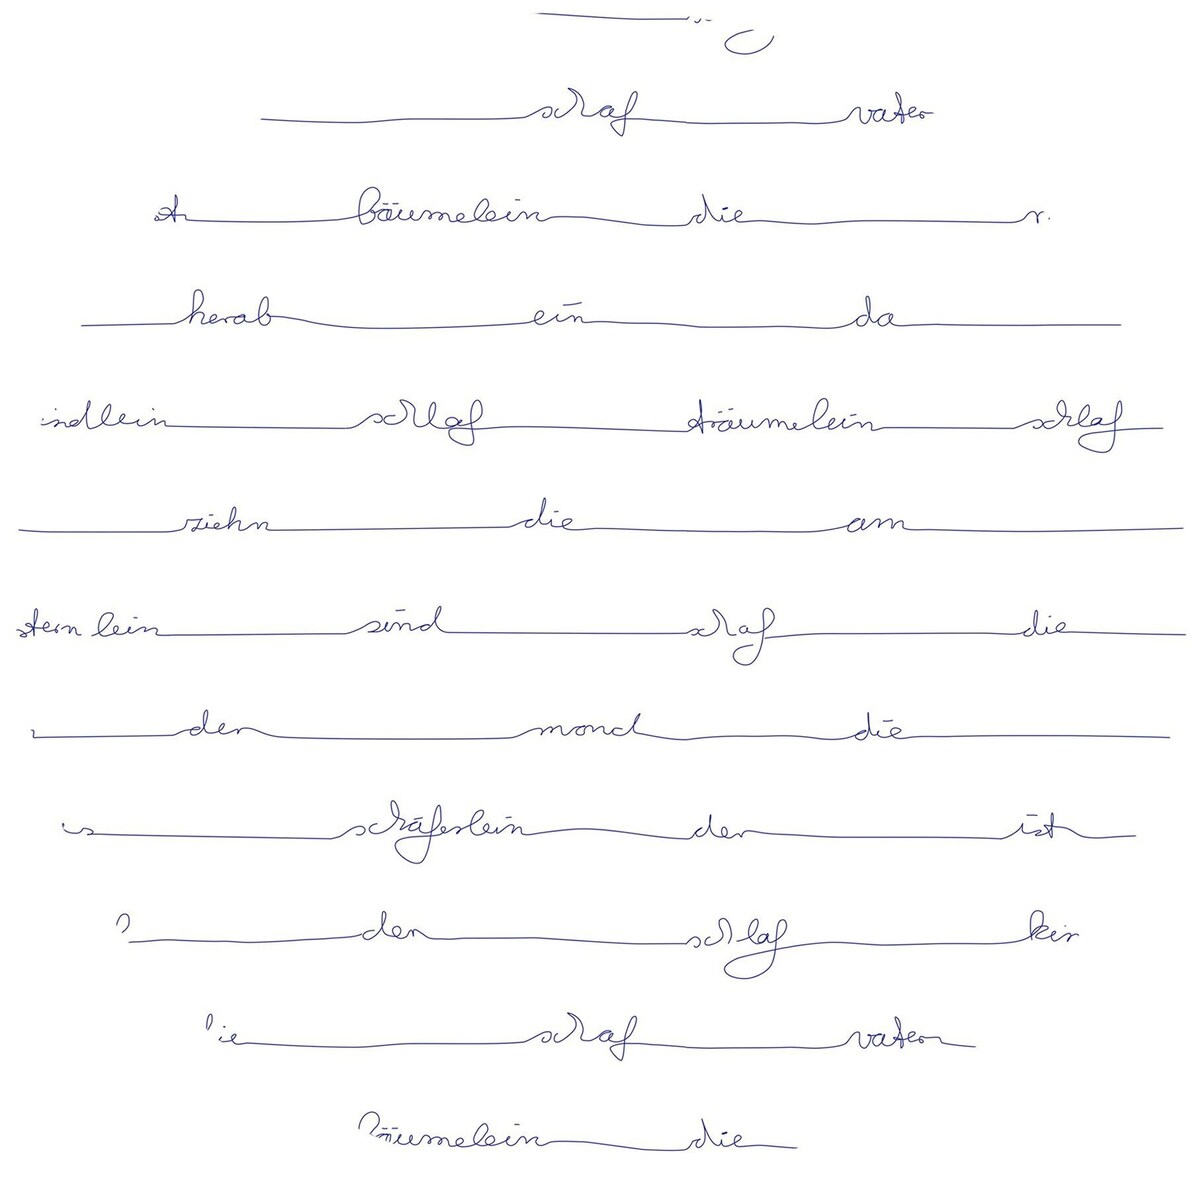 schaf vater
bäumelein die
herab ein da
indlein schlaf träumelein schlaf
ziehn die am
sternlein sind schaf die
der mond die
schäferlein der ist
der schlaf kin
ie schaf vater
äumelein die